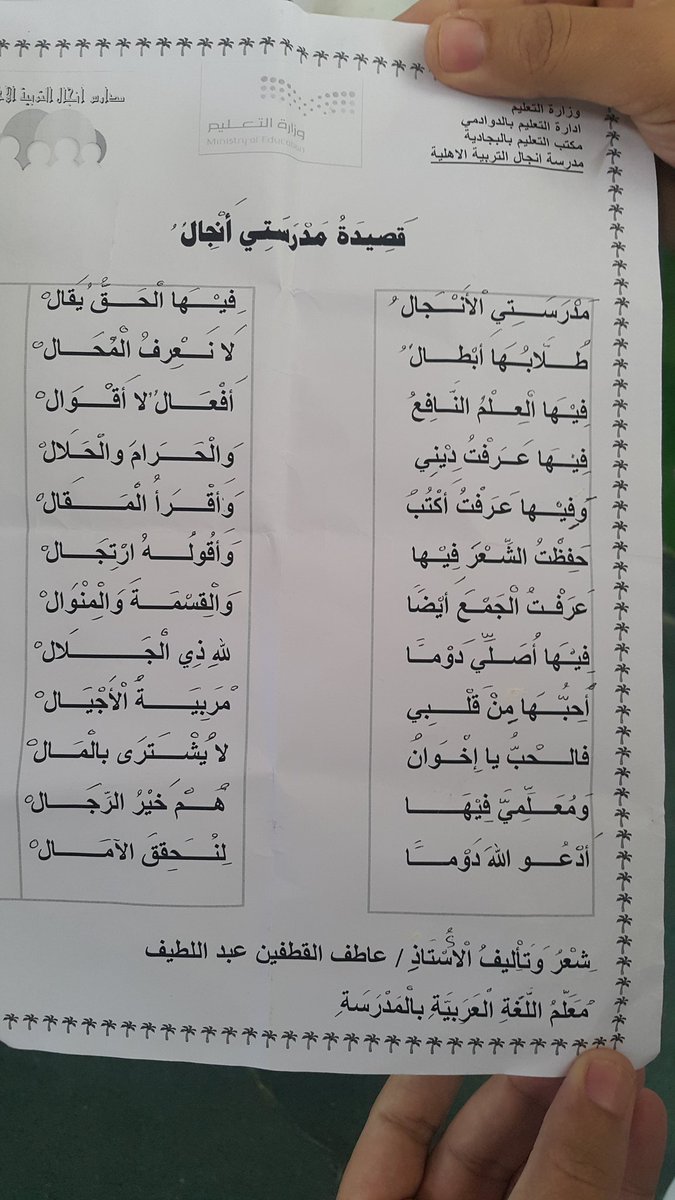 وزارة التعليم
ادارة التعليم بالدوادمي
مكتب التعليم بالبجادية
مدرسة انجال التربية الاهلية
وزارة التعليم
Ministry of Education
مدارس انجال التربية
قَصِيدَةُ مَدْرَسَتِي أَنْجِالُ
مَدْرَسَتِي الْأَنْجَالُ فِيْهَا الْحَقُّ يُقَالْ
طُلَّابُهَا أَبْطَالٌ لَا نَعْرِفُ الْمُحَالْ
فِيْهَا الْعِلْمُ النَّافِعُ أَفْعَالٌ لا أَقْوَالْ
فِيْهَا عَرَفْتُ دِيْنِي وَالْحَرَامَ والْحَلَالْ
وَفِيْها عَرَفْتُ أَكْتُبُ وَأَقْرَأُ الْمَقَالْ
حَفِظْتُ الشِّعْرَ فِيْهَا وَأَقُولُهُ ارْتِجَالْ
عَرَفْتُ الْجَمْعَ أَيْضَاً وَالْقِسْمَةَ وَالْمِنْوَالْ
فِيْهَا أُصَلِّي دَوْمـًا للهِ ذِي الْجَلَالْ
أُحِبُّهَا مِنْ قَلْبِي مْرَبِيَةُ الْأَجْيَالْ
فالحْبُّ يا إِخْوَانُ لا يُشْتَرَى بالْمَالْ
وَمُعَلِّمِيَّ فِيْهَا هُمْ خَيْرُ الرِّجَالْ
أَدْعُو اللهَ دَوْمًا لِنُحَقِقَ الآمَالْ
شِعْرُ وَتَأْلِيفُ الْأُسْتَاذِ / عاطف القطفين عبد اللطيف
مُعَلِّمُ اللُّغَةِ الْعَرَبِيَّةِ بالْمَدْرَسَةِ